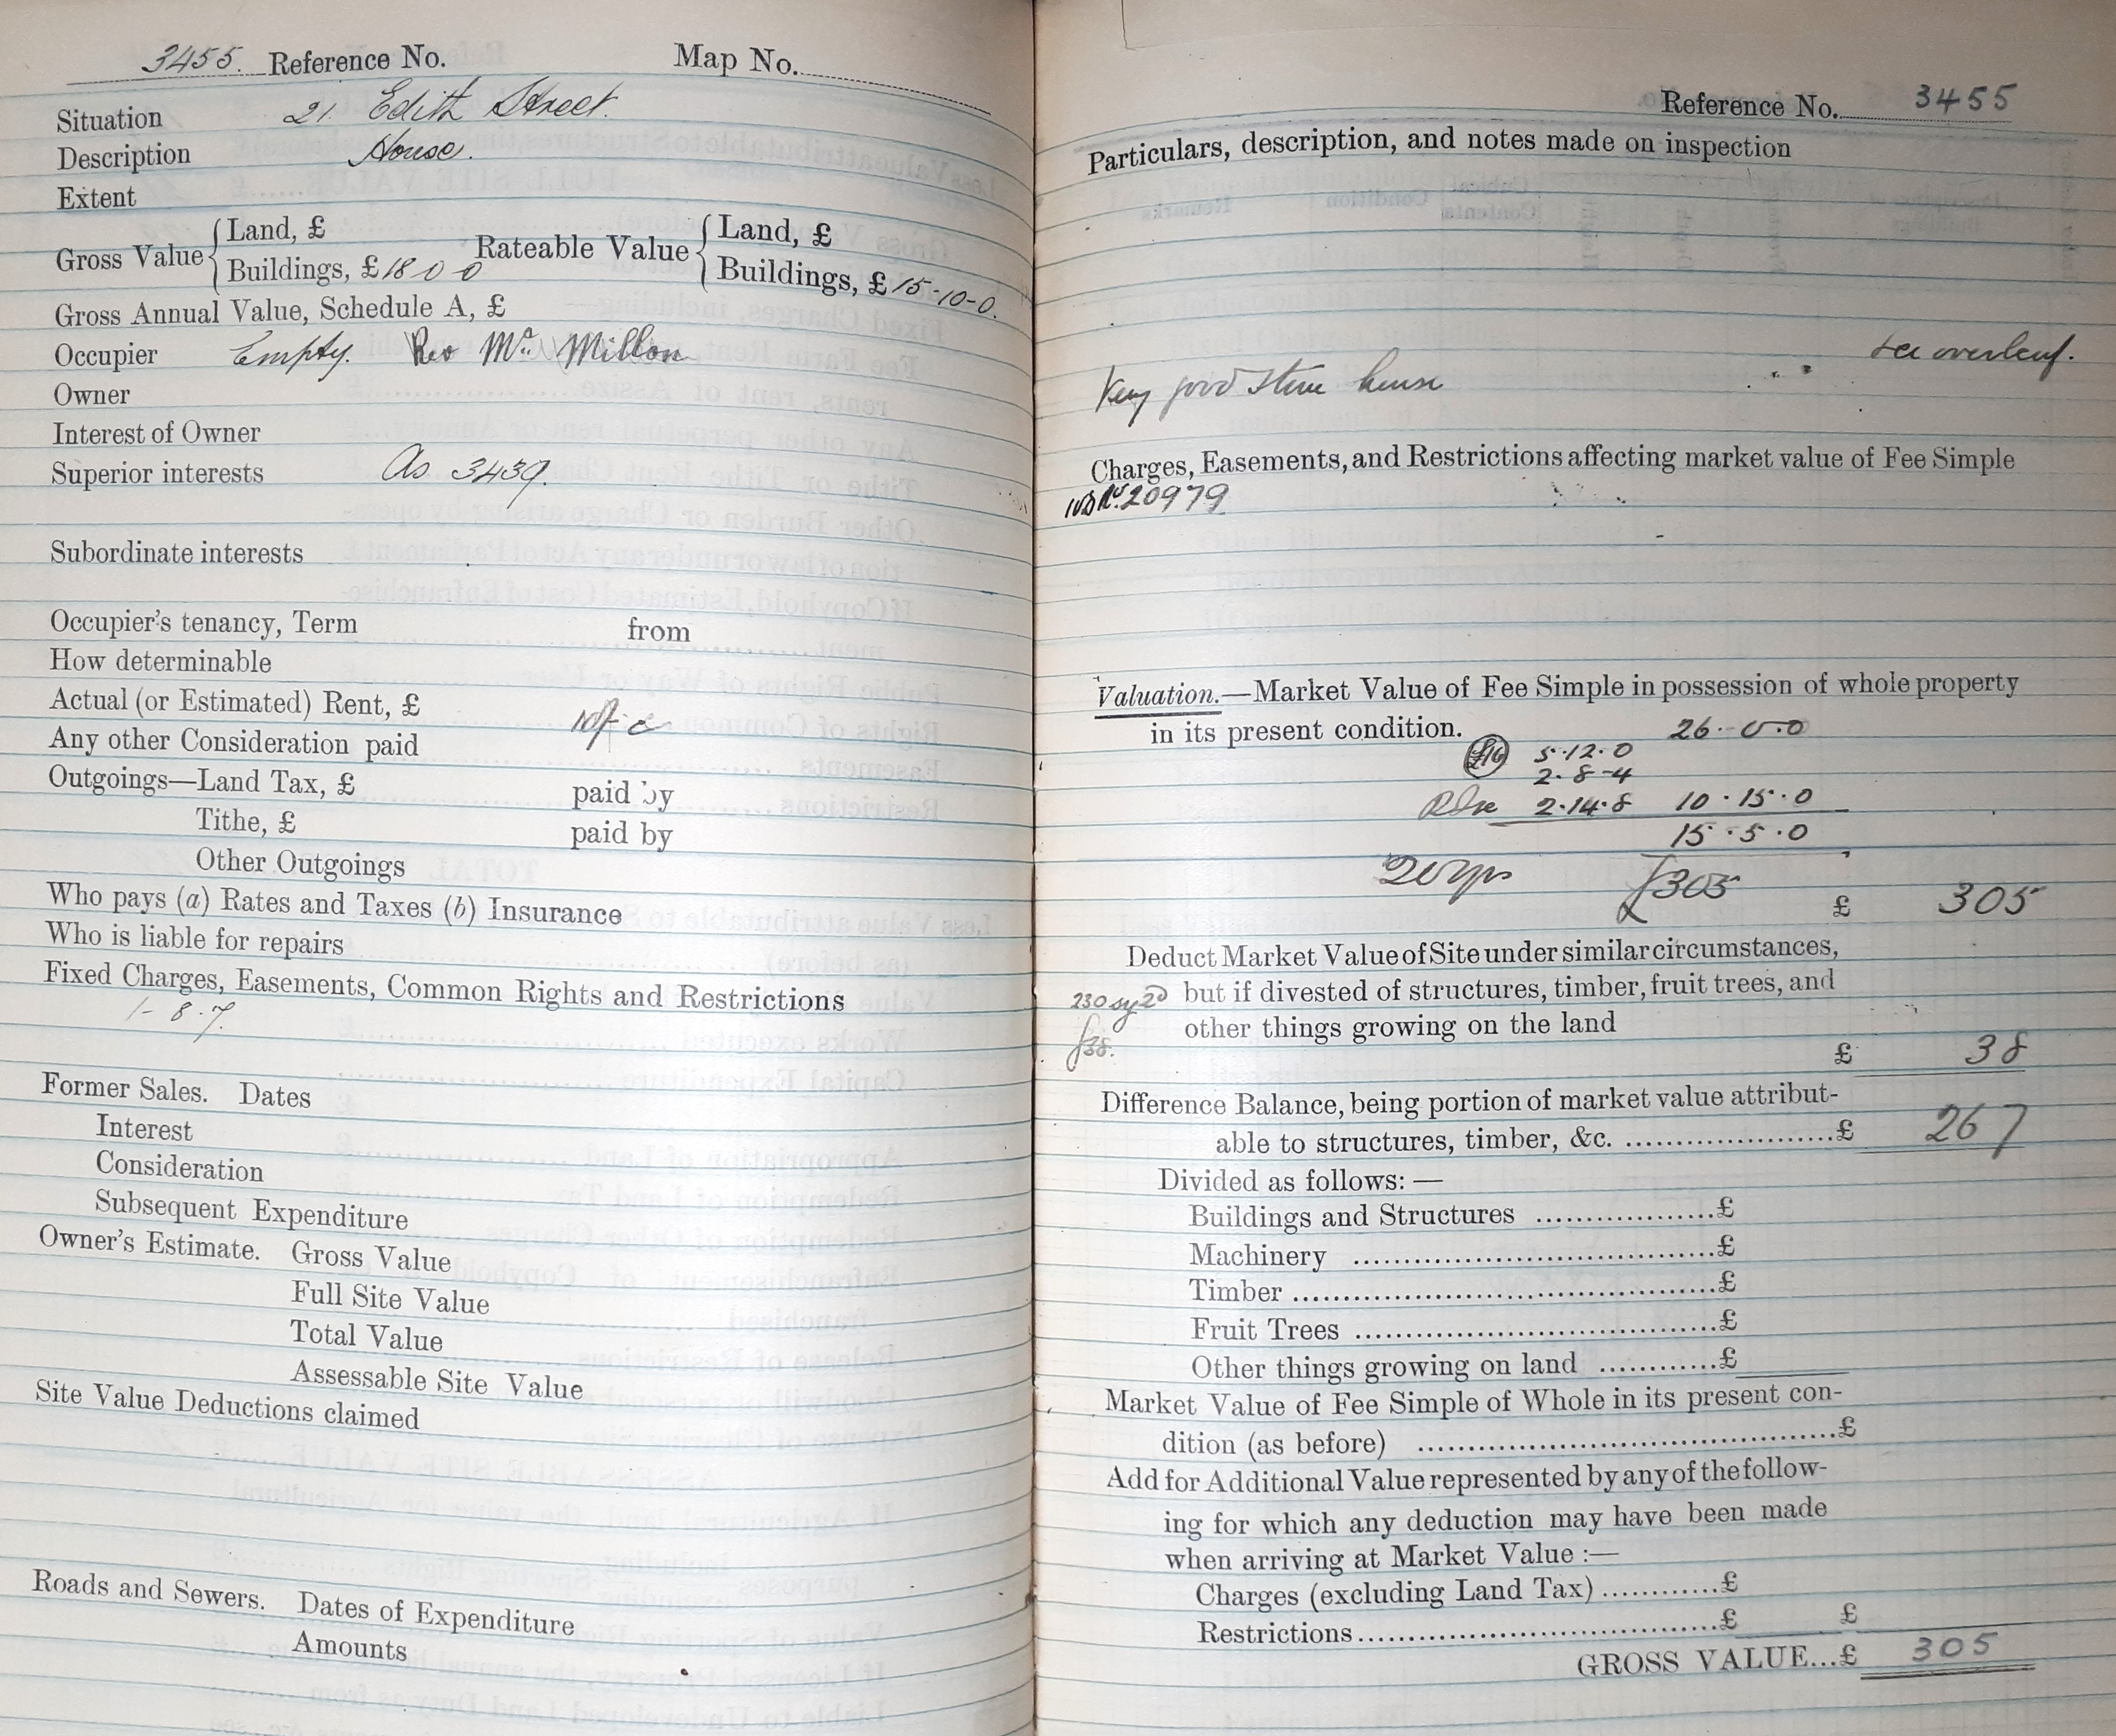 3455. Reference No. Map No.
Situation 21 Edith Street.
Description House.
Extent
Gross Value { Land, £ Rateable Value { Land, £
Buildings, £ 18-0-0 Buildings, £ 15-10-0.
Gross Annual Value, Schedule A, £
Occupier Empty. Rev Millon
Owner
Interest of Owner
Superior interests As 3439.
Subordinate interests
Occupier's tenancy, Term from
How determinable
Actual (or Estimated) Rent, £
10/- c
Any other Consideration paid
Outgoings—Land Tax, £ paid by
Tithe, £ paid by
Other Outgoings
Who pays (a) Rates and Taxes (b) Insurance
Who is liable for repairs
Fixed Charges, Easements, Common Rights and Restrictions
1-8.7.
Former Sales. Dates
Interest
Consideration
Subsequent Expenditure
Owner's Estimate. Gross Value
Full Site Value
Total Value
Assessable Site Value
Site Value Deductions claimed
Roads and Sewers. Dates of Expenditure
Amounts
Reference No. 3455
Particulars, description, and notes made on inspection
see overleaf.
Very good stone house
Charges, Easements, and Restrictions affecting market value of Fee Simple
20979
Valuation.—Market Value of Fee Simple in possession of whole property
in its present condition. 26-0-0
£16 5.12.0
2.8-4
2.14.8 10.15.0
15.5.0
20 yps £305
£ 305
Deduct Market Value of Site under similar circumstances,
230 sy 2D but if divested of structures, timber, fruit trees, and
other things growing on the land
£38.
£ 38
Difference Balance, being portion of market value attribut-
able to structures, timber, &c. ....................£ 267
Divided as follows:—
Buildings and Structures ..................£
Machinery ....................................£
Timber ..........................................£
Fruit Trees ....................................£
Other things growing on land ............£
Market Value of Fee Simple of Whole in its present con-
dition (as before) ..........................................£
Add for Additional Value represented by any of the follow-
ing for which any deduction may have been made
when arriving at Market Value :—
Charges (excluding Land Tax) ............£
Restrictions.....................................£ £
GROSS VALUE...£ 305